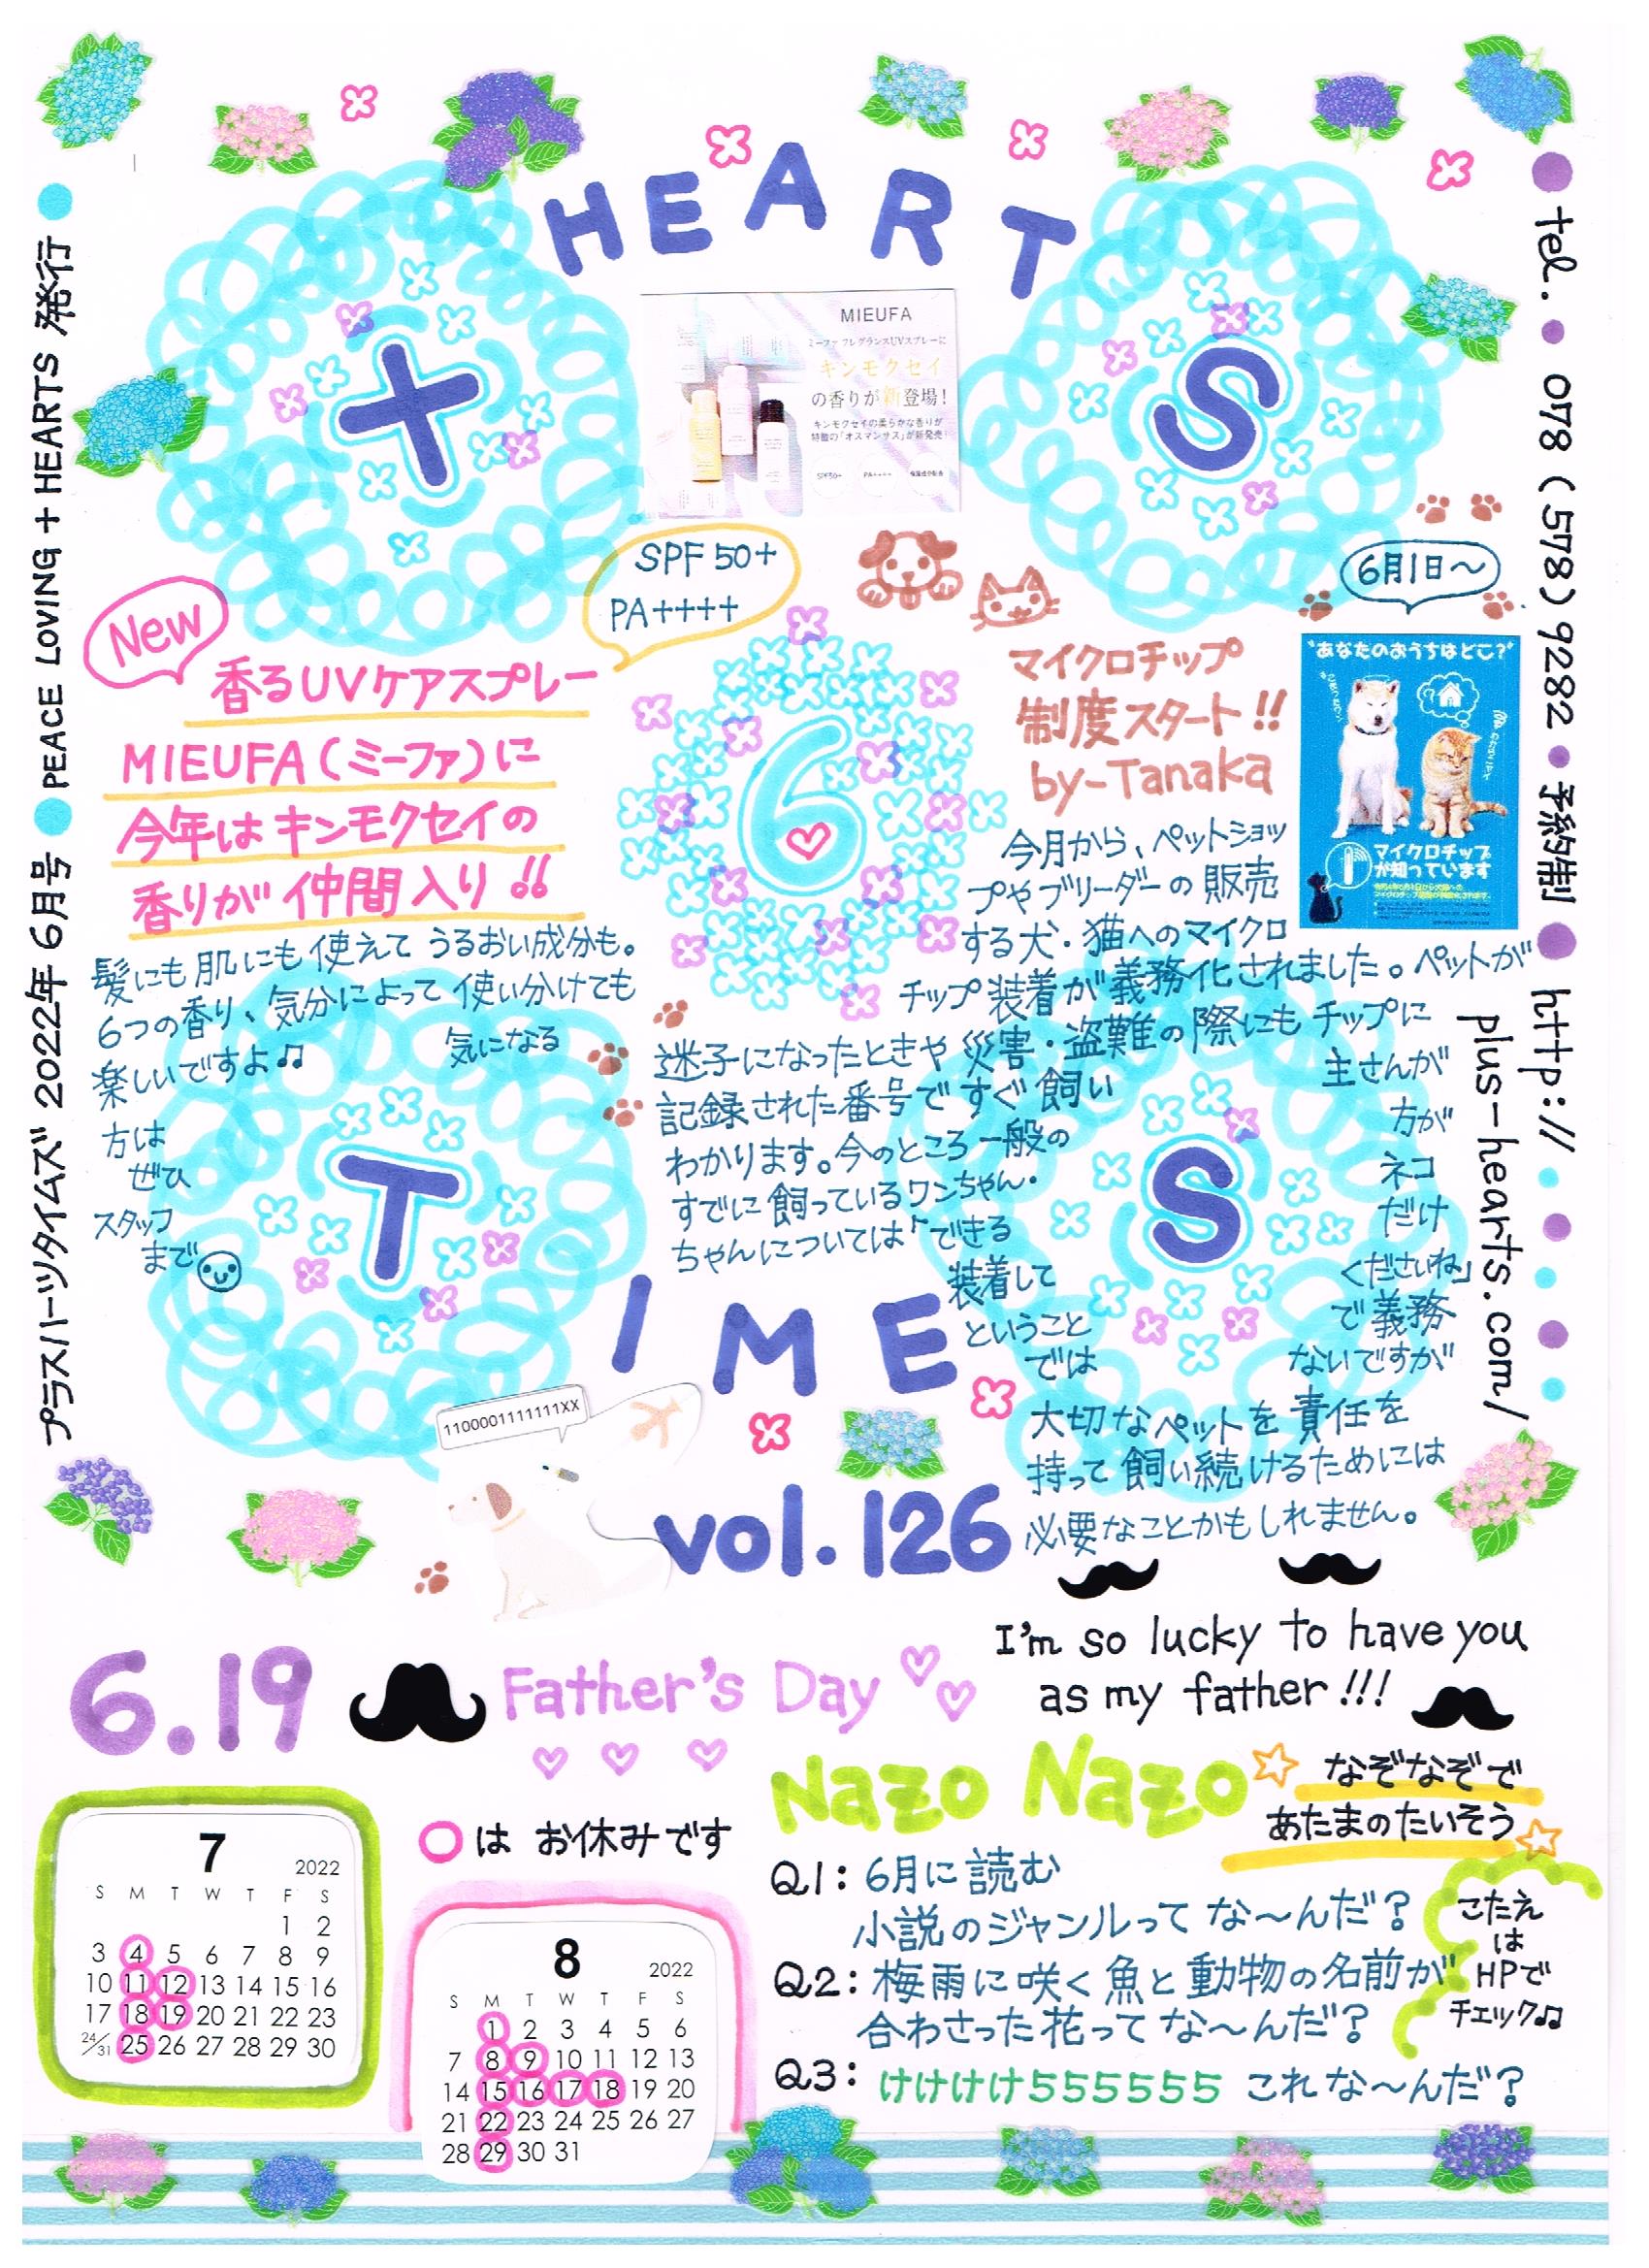 + HEARTS
TIMES
vol.126
6
プラスハーツタイムズ 2022年 6月号 ● PEACE LOVING + HEARTS 発行
tel. 078 (578) 9282 予約制 http://
plus-hearts.com/
MIEUFA
ミーファ フレグランスUVスプレーに
キンモクセイ
の香りが新登場!
キンモクセイの柔らかな香りが
特徴の「オスマンサス」が新発売!
SPF50+ PA++++
SPF 50+
PA++++
New
香るUVケアスプレー
MIEUFA(ミーファ)に
今年はキンモクセイの
香りが仲間入り!!
髪にも肌にも使えてうるおい成分も。
6つの香り、気分によって使い分けても
楽しいですよ♫ 気になる
方は
ぜひ
スタッフ
まで
6月1日〜
マイクロチップ
制度スタート!!
by-Tanaka
"あなたのおうちはどこ?"
マイクロチップ
が知っています
今月から、ペットショッ
プやブリーダーの販売
する犬・猫へのマイクロ
チップ装着が義務化されました。ペットが
迷子になったときや災害・盗難の際にもチップに
記録された番号ですぐ飼い 主さんが
わかります。今のところ一般の 方が
すでに飼っているワンちゃん・ ネコ
ちゃんについては「できる だけ
装着して くださいね」
ということ で義務
では ないですが
大切なペットを責任を
持って飼い続けるためには
必要なことかもしれません。
1100001111111XX
6.19 Father's Day
I'm so lucky to have you
as my father!!!
○は お休みです
7
2022
S M T W T F S
1 2
3 4 5 6 7 8 9
10 11 12 13 14 15 16
17 18 19 20 21 22 23
24/31 25 26 27 28 29 30
8
2022
S M T W T F S
1 2 3 4 5 6
7 8 9 10 11 12 13
14 15 16 17 18 19 20
21 22 23 24 25 26 27
28 29 30 31
Nazo Nazo
なぞなぞで
あたまのたいそう
Q1: 6月に読む
小説のジャンルってな〜んだ?
Q2: 梅雨に咲く魚と動物の名前が
合わさった花ってな〜んだ?
Q3: けけけけ555555 これな〜んだ?
こたえ
は
HPで
チェック♫